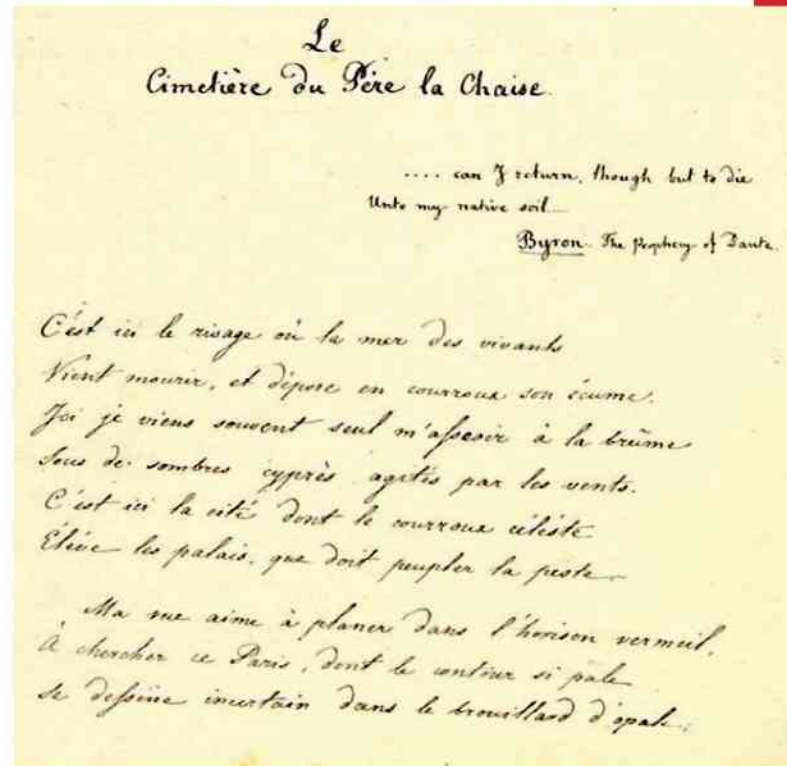 Le
Cimetière du Père la Chaise.
.... can I return, though but to die
Unto my native soil....
Byron. The Prophecy of Dante.
C'est ici le rivage où la mer des vivants
Vient mourir, et dépose en courroux son écume.
Ici je viens souvent seul m'asseoir à la brûme
Sous de sombres cyprès agités par les vents.
C'est ici la cité dont le courroux céleste
Élève les palais, que doit peupler la peste.
Ma vue aime à planer dans l'horison vermeil,
À chercher ce Paris, dont le contour si pale
Se dessine incertain dans le brouillard d'opale;